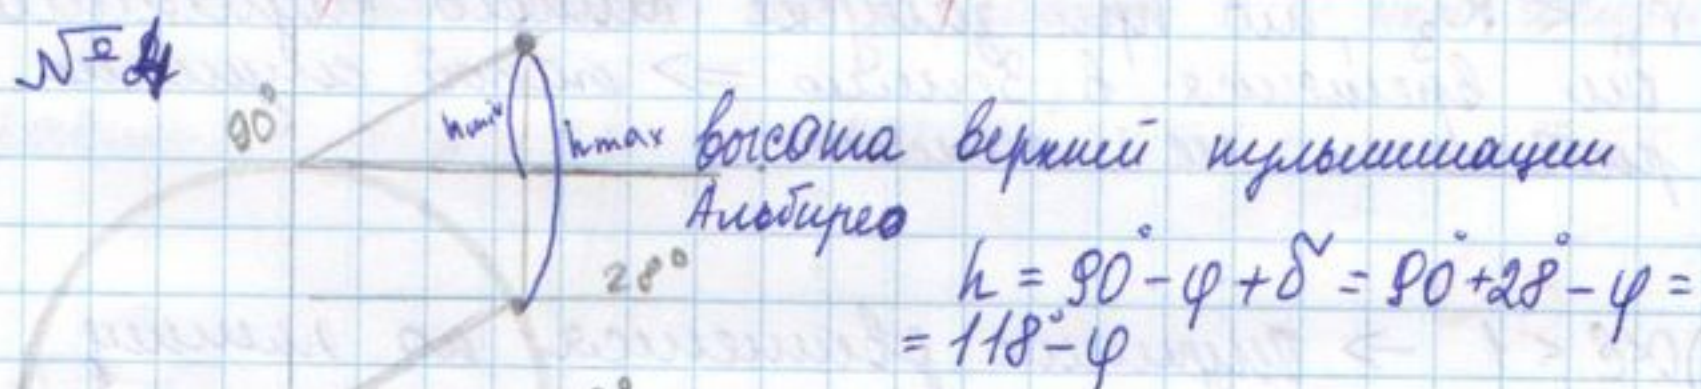 90°
hmin
hmax
высота верхней кульминации
Альбирео
28°
h = 90° - φ + δ = 90° + 28° - φ =
= 118° - φ